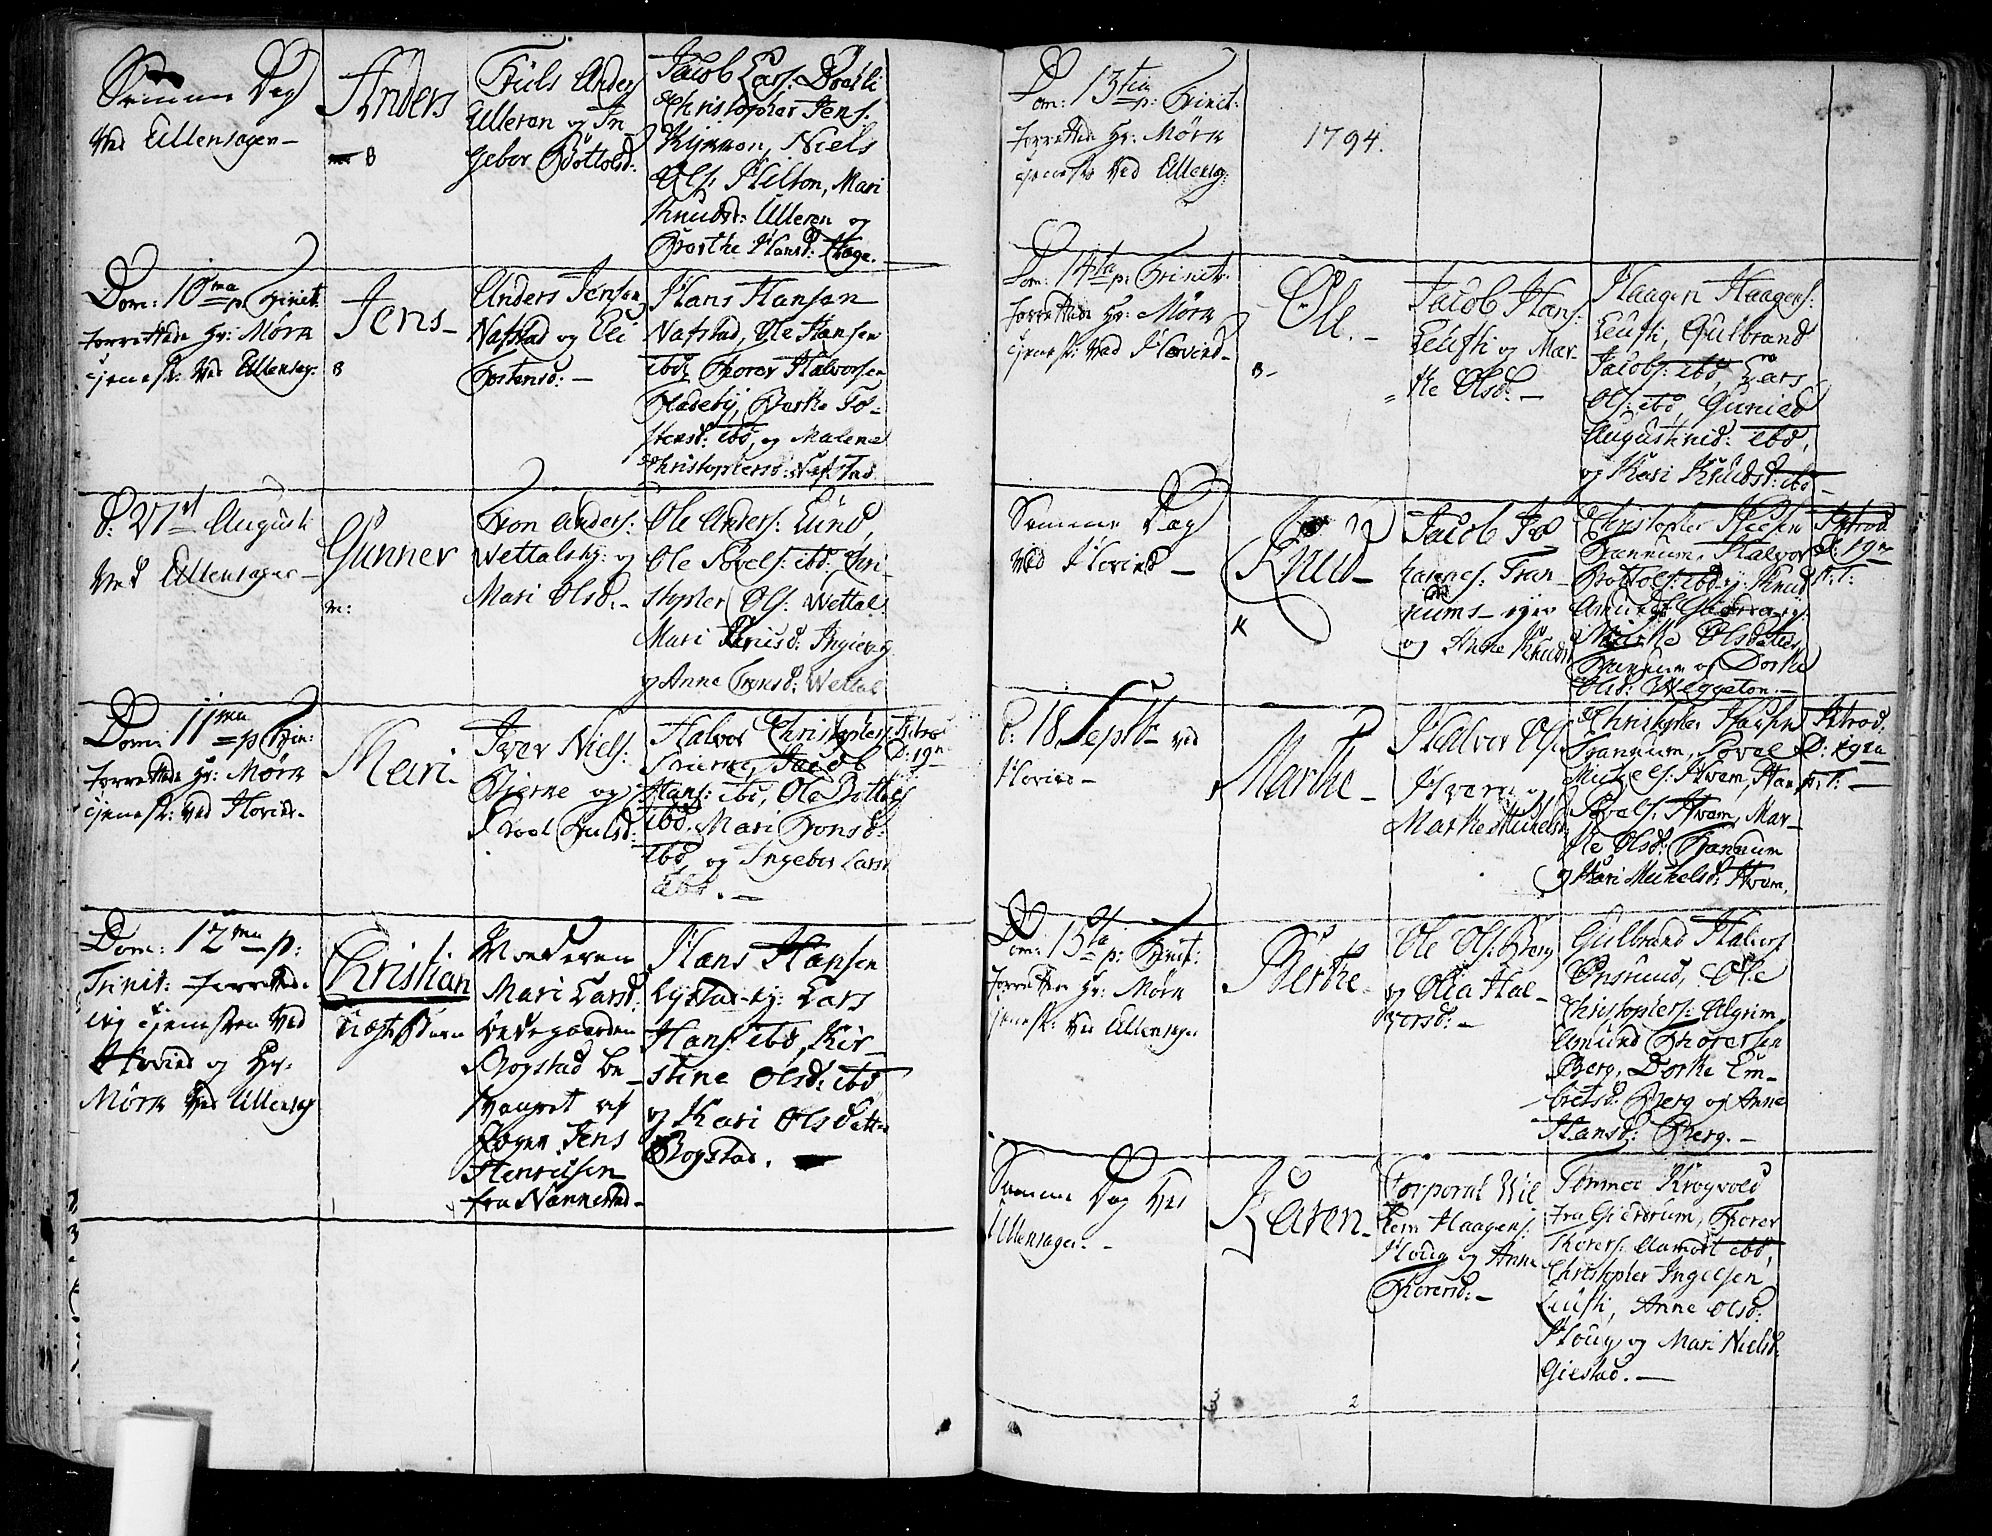 Samme Dag
ved Ullensager –
Anders
8
Truls Anders
Ulleren og In-
gebor Bottolsd:
Jacob Lars: Døhli
Christopher Jens:
Kjimon, Niels
Ols: Hilton, Mari
Knudsd: Ulleren og
Børthe Hansd: Hage.
Dom: 10ma p: Trinit:
forrettede Hr: Mørk
tjenest: ved Ullensag:
Jens –
8
Anders Jensen
Nafstad og Eli
Tostensd: –
Hans Hansen
Nafstad, Ole Hansen
ibd, Thorer Halvorsen
Fladeby, Berthe To-
stensd: ibd, og Malene
Christophersd: Nafstad
d: 27st Augusti
ved Ullensager –
Gunner
m:
Tron Anders:
Wettalsky: og
Mari Olsd. –
Ole Anders: Lund,
Ole Povels: ibd: Chri-
stopher Ols: Wettal
Mari
og Anne Tronsd: Wettal
Dom: 11ma p Trin:
forrettede Hr: Mørk
tjenest: ved Hovind –
Mari.
Iver Niels:
Bjerke og
Hans: ibd, Ole Bottols
ibd, Mari Tronsd:
ibd, og Ingebor Lars
ibd. –
Introd:
D: 19n
Dom: 12ma p:
Trinit: forrettede
jeg tjenesten ved
Hovind og Hr:
Mørk ved Ullensag
Christian
uægte Barn
Moderen
Mari Larsd:
Bogstad be-
svangret af
Jens
Henricsen
fra Nannestad –
Hans Hansen
Lystad-ej: Lars
Hans: ibd, Kir-
stine Olsd: ibd
og Kari Olsdatter
Bogstad.
Dom: 13tia p: Trinit:
forrettede Hr: Mørk
tjeneste ved Ullensag:
1794.
Dom: 14ta p: Trinit:
forrettede Hr: Mørk
tjenest: ved Hovind –
Ole. –
8 –
Jacob Hans:
Leufti og Mar-
the Olsd: –
Haagen Haagens:
Leufti, Gulbrand
Jacobs: ibd, Lars
Ols: ibd, Gunild
Augustinid: ibd,
og Kari Knudsd: ibd –
Samme Dag
ved Hovind –
Knud
K
Jacob Jo
hannes: Tran-
nums-ejer
og Anne Knudsd
Christopher
Trannum, Halvor
Bottols: ibd ej: Knud
Amunds:
Marthe Olsdatter
Trannum og Dorthe
Olsd: Weggeton. –
Introd
D: 19n
d: 18 Septb – ved
Hovind –
Marthe –
Halvor Ols:
Hvam og
Marthe Michelsd
Christopher
Trannum, Povel
Michels: Hvam, Hans
Povels: Hvam, Mar-
the Olsd: Trannum
og Kari Michelsd: Hvam.
Introd:
D: 19n
Dom: 15ta p: Trinit:
forrettede Hr: Mørk
tjenest: ved Ullensag:
Berthe.
Ole Ols: Berg
og Olia Hal-
vorsd: –
Gulbrand Halvors:
Onsrud, Ole
Christophers: Algrim
Amund Thorersen
Berg, Dorthe Em-
bretsd: Berg og Anne
Hansd: Berg. –
Samme Dag ved
Ullensager. –
Karen.
Corporal Wil
hem Haagens:
Houg og Anne
Thorersd: –
Tømmer Krogvold
fra Gierdrum, Thorer
Thorers: Aamodt ibd,
Christopher Ingelsen
Leufti, Anne Olsd:
Houg, og Mari Nielsd:
Gielstad. –
2